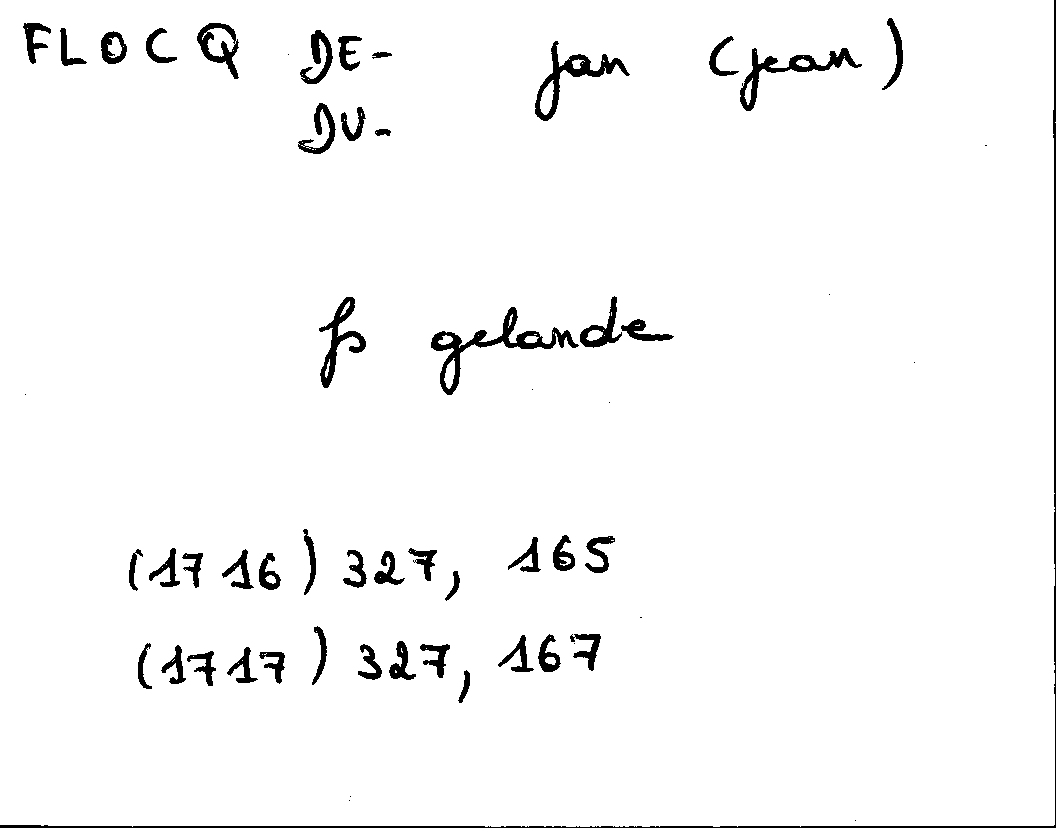 FLOCQ DE- jan (jean)
DU-
gelande
(1716) 327, 165
(1717) 327, 167